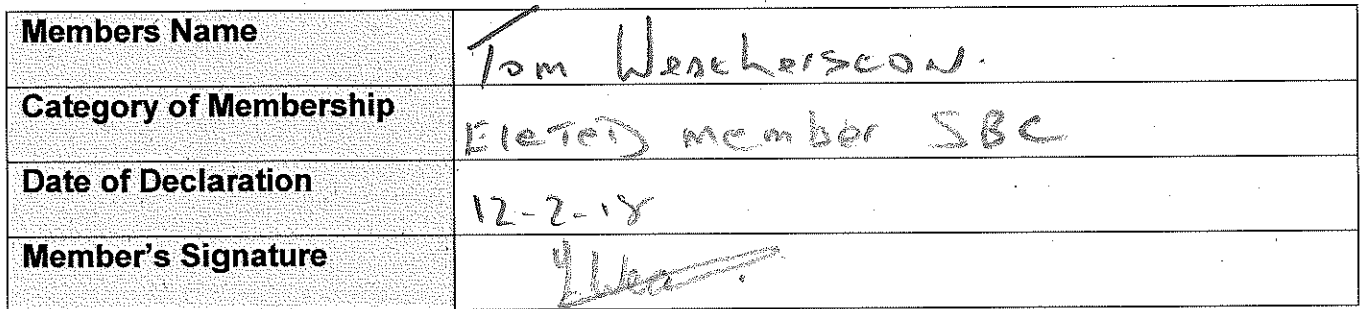 Members Name Tom Weatherston.
Category of Membership EleTeD member SBC
Date of Declaration 12-2-18
Member's Signature